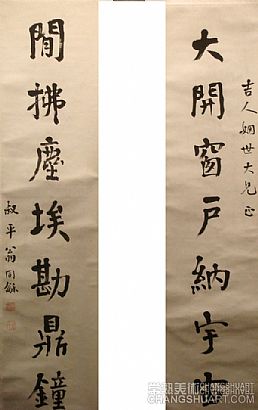 吉人姻世大兄正
大開窗戶納宇
閒拂塵埃勘鼎鐘
叔平翁同龢
CHANGSHUART.COM